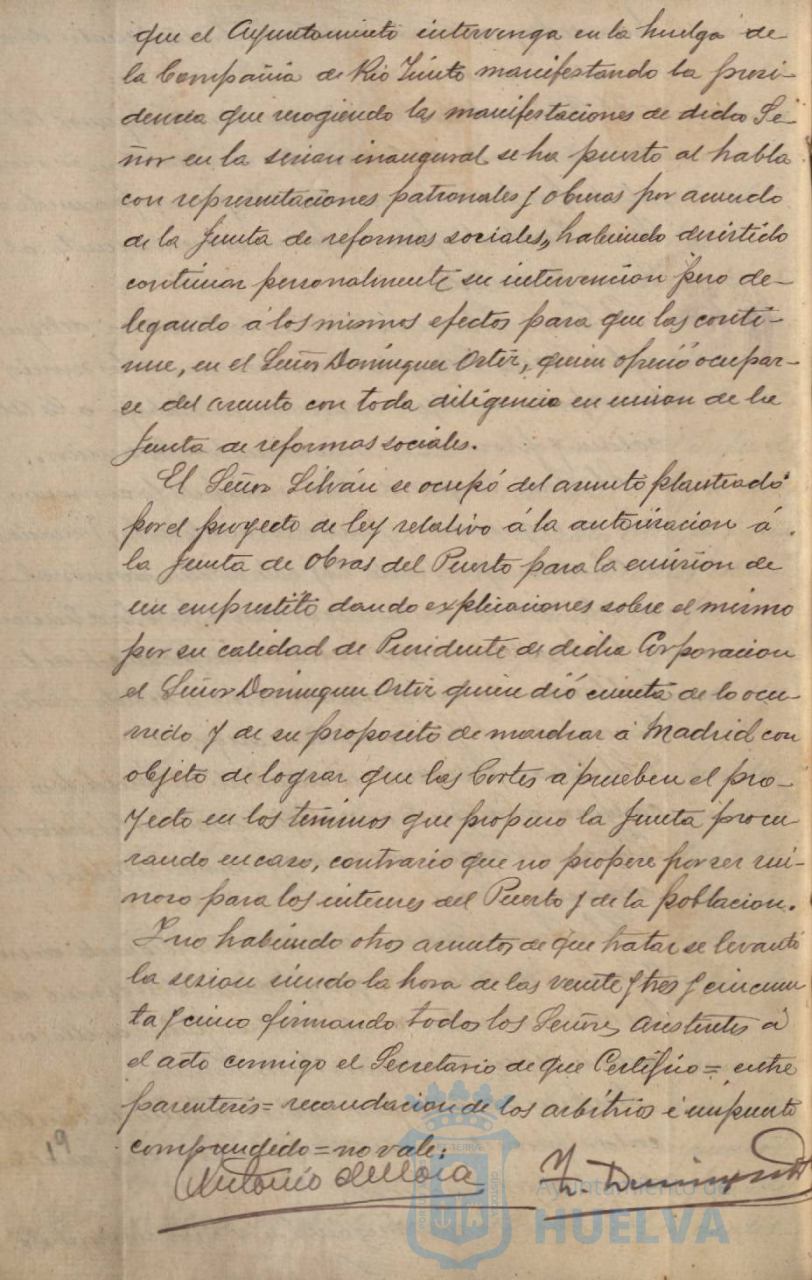 que el Ayuntamiento intervenga en la huelga de
la Compañia de Rio Tinto manifestando la presi-
dencia que recogiendo las manifestaciones de dicho Se-
ñor en la sesion inaugural se ha puesto al habla
con representaciones patronales y obreras por acuerdo
de la Junta de reformas sociales, habiendo desistido
continuar personalmente su intervencion pero de-
legando á los mismos efectos para que las conti-
nue, en el Señor Dominguez Ortiz, quien ofreció ocupar-
se del asunto con toda diligencia en union de la
Junta de reformas sociales.
El Señor Silván se ocupó del asunto planteado
por el proyecto de ley relativo á la autorizacion á
la Junta de Obras del Puerto para la emision de
un emprestito dando explicaciones sobre el mismo
por su calidad de Presidente de dicha Corporacion
el Señor Dominguez Ortiz quien dió cuenta de lo ocu-
rrido y de su proposito de marchar á Madrid con
objeto de lograr que las Cortes aprueben el pro-
yecto en los términos que propuso la Junta procu-
rando en caso, contrario que no prospere por ser rui-
noso para los intereses del Puerto y de la poblacion.
Y no habiendo otros asuntos de que tratar se levantó
la sesion siendo la hora de las veinte y tres y cincuen
ta y cinco firmando todos los Señores asistentes á
el acto conmigo el Secretario de que Certifico = entre
parentesis = recaudacion de los arbitrios é impuesto
comprendido = no vale:
19
Antonio de Mora
Ayuntamiento de
HUELVA